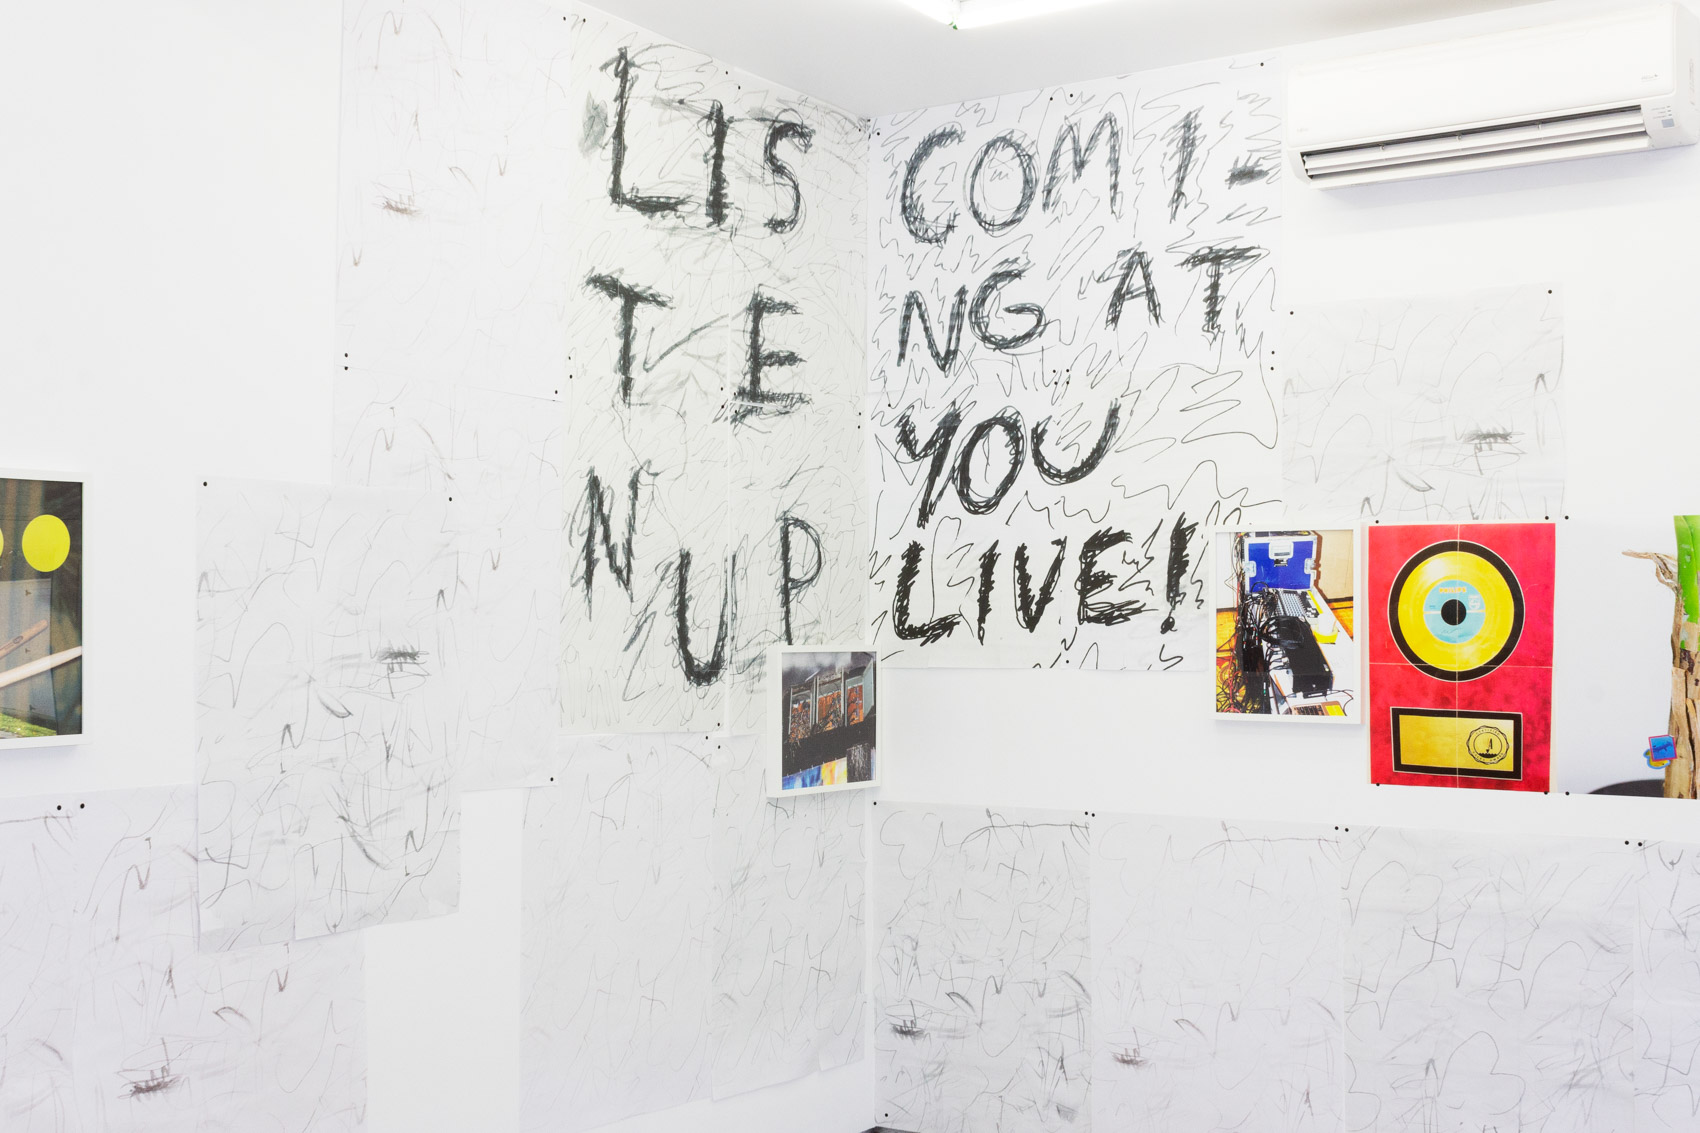 LIS
TE
N
UP
COMI-
NG AT
YOU
LIVE!